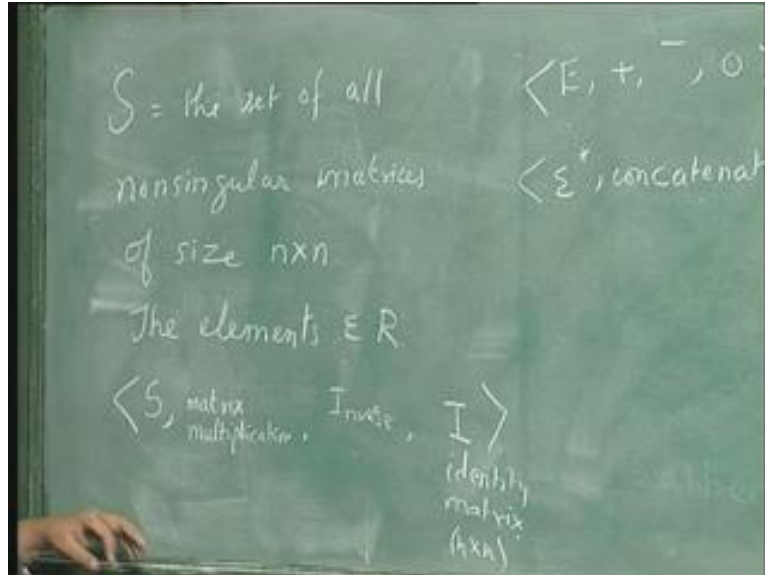 S = the set of all
nonsingular matrices
of size n×n
The elements ε R
<S, matrix multiplication, Inverse, I>
identity
matrix
(n×n)
<E, +, ‾, 0
<Σ*, concatenat